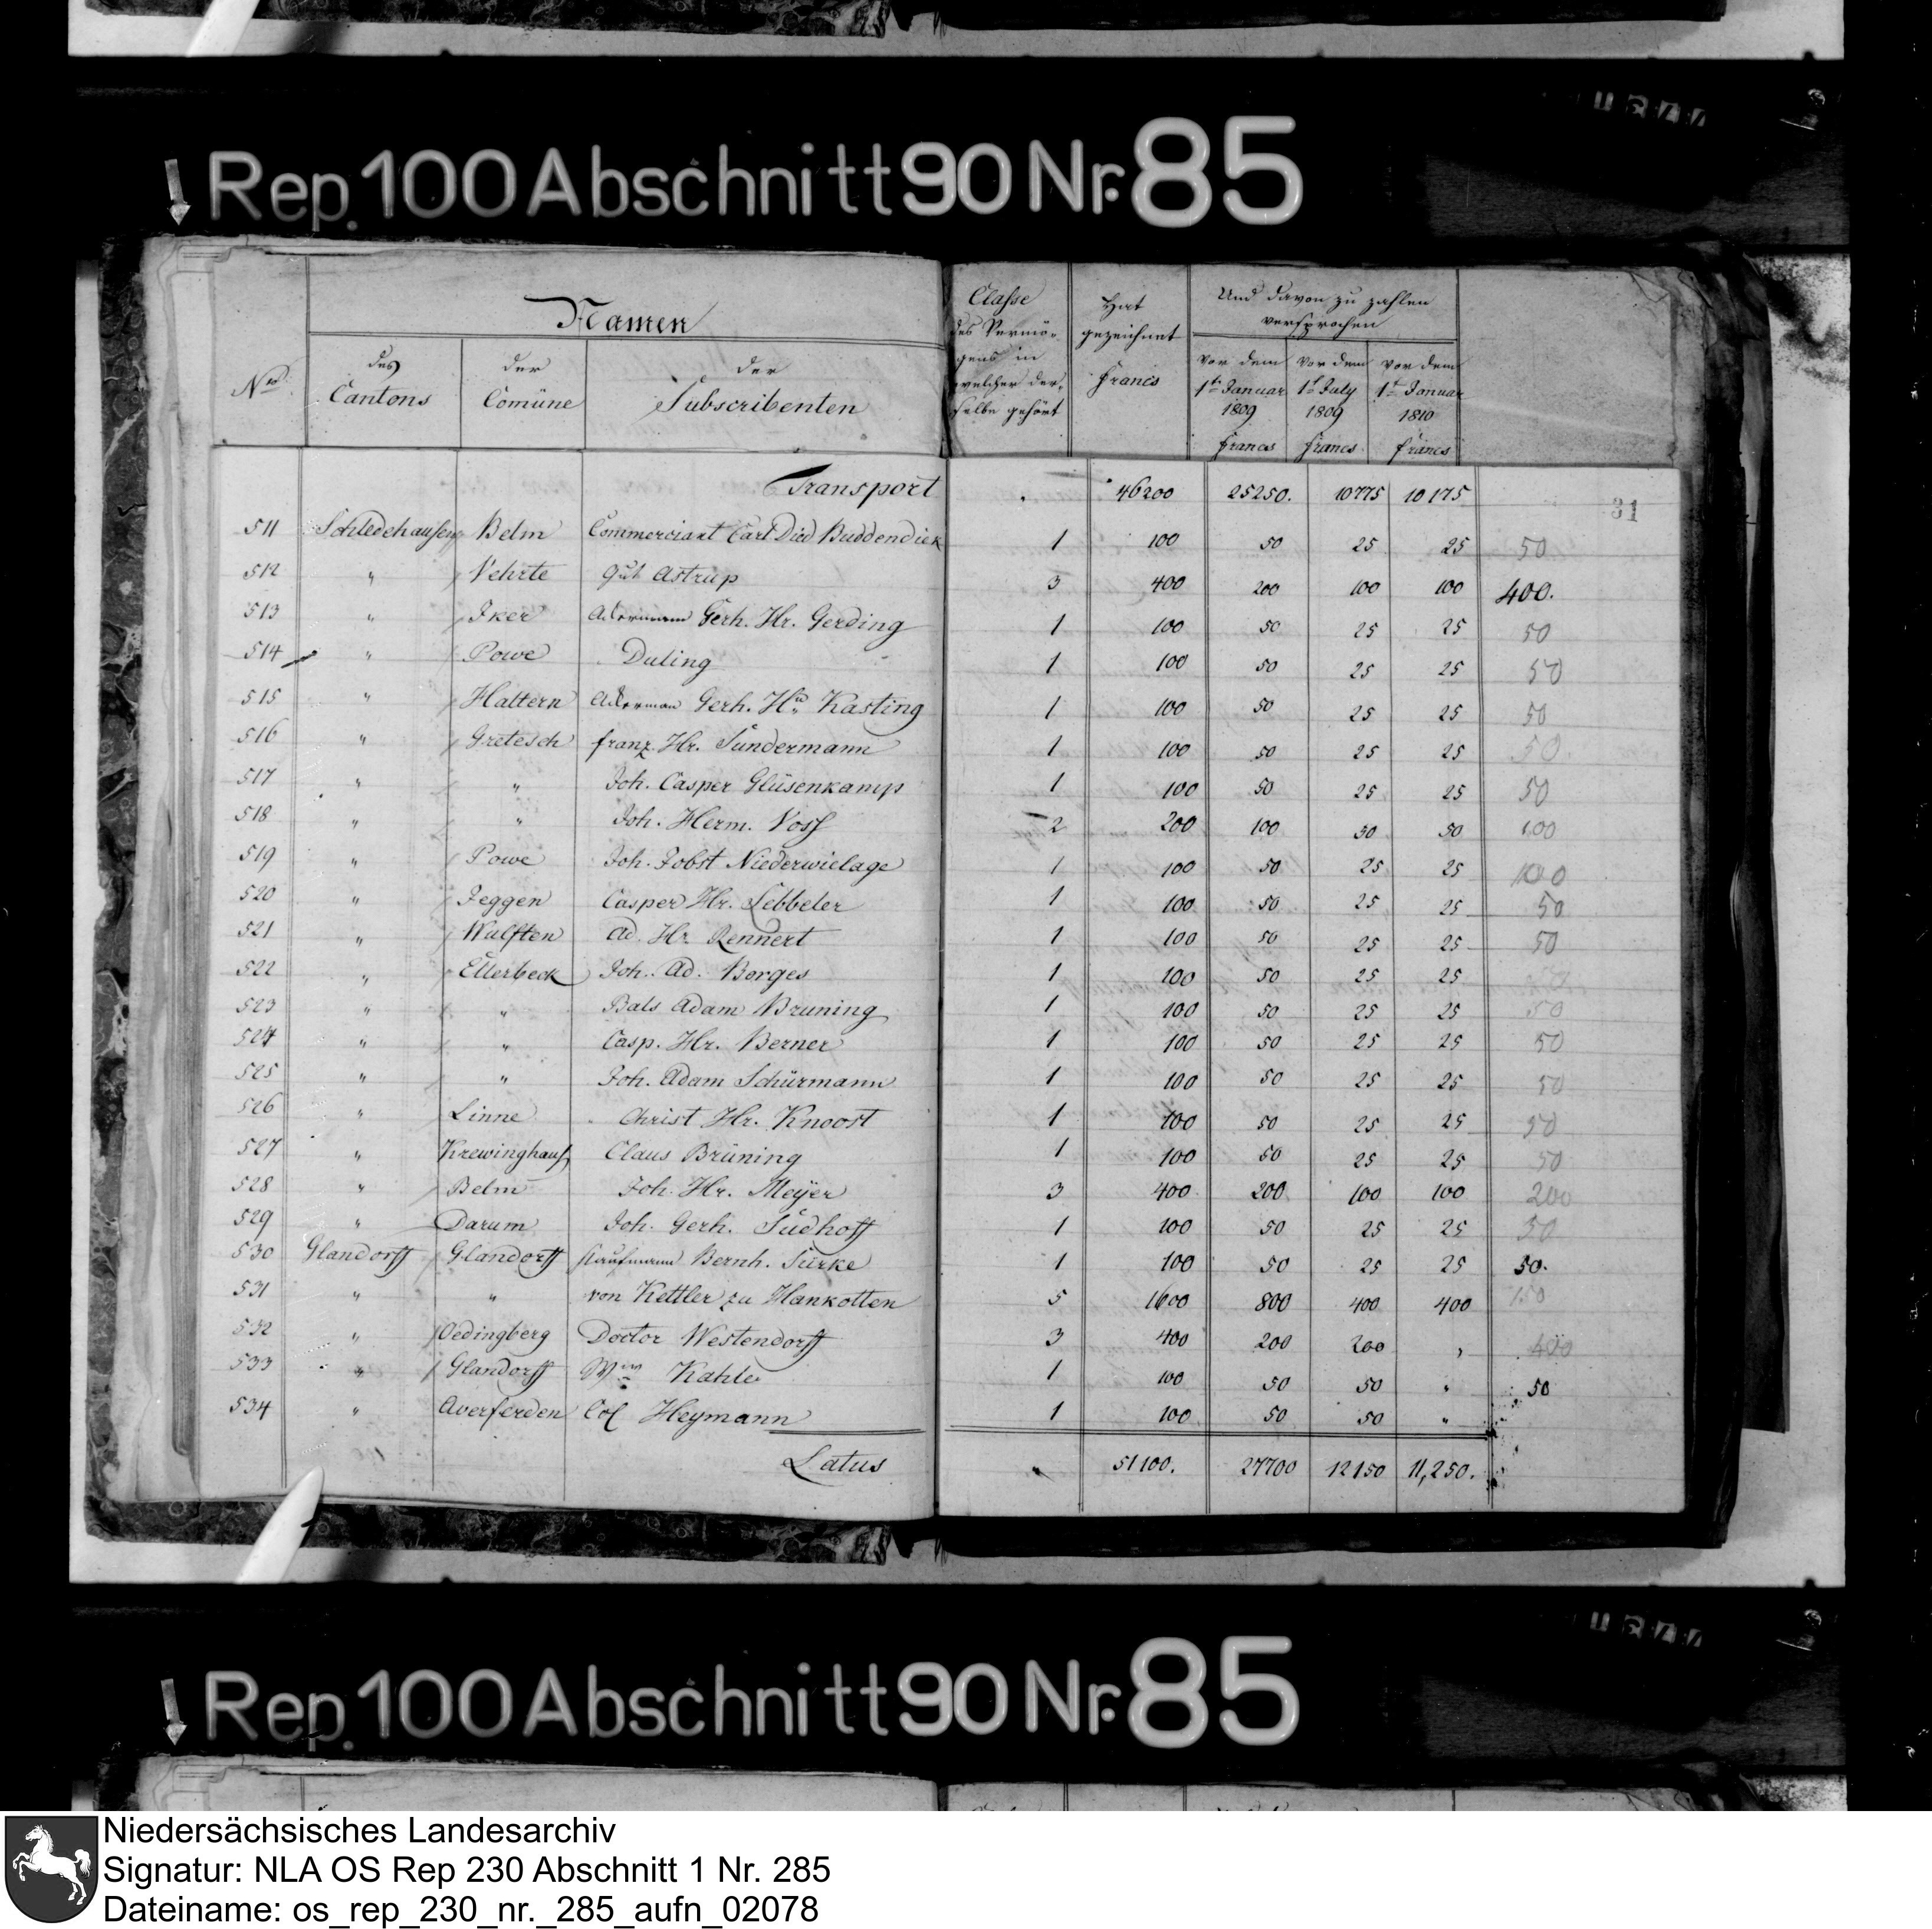 Rep. 100 Abschnitt 90 Nr. 85
Namen
Nro. des Cantons der Comüne der Subscribenten Classe des Vermögens in welcher derselbe gehört Hat gezeichnet Francs Und davon zu zahlen versprochen
vor dem 1t Januar 1809 Francs vor dem 1t July 1809 Francs vor dem 1t Januar 1810 Francs
31
Transport 46200 25250. 10775 10175
511 Schledehausen Belm Commerciant Carl Died Buddendiek 1 100 50 25 25 50
512 " Vehrte Gut Astrup 3 400 200 100 100 400.
513 " Iker Gerh. Hr. Gerding 1 100 50 25 25 50
514 " Powe Duling 1 100 50 25 25 50
515 " Haltern Gerh. Hr. Kasting 1 100 50 25 25 50
516 " Gretesch franz Hr. Sundermann 1 100 50 25 25 50
517 " " Joh. Casper Glüsenkamp 1 100 50 25 25 50
518 " " Joh. Herm. Voss 2 200 100 50 50 100
519 " Powe Joh. Jobst Niederwielage 1 100 50 25 25 100
520 " Jeggen Casper Hr. Lebbeler 1 100 50 25 25 50
521 " Wulften Ad. Hr. Rennert 1 100 50 25 25 50
522 " Ellerbeck Joh. Ad. Borges 1 100 50 25 25
523 " " Bals Adam Bruning 1 100 50 25 25 50
524 " " Casp. Hr. Berner 1 100 50 25 25 50
525 " " Joh. Adam Schürmann 1 100 50 25 25 50
526 " Linne Christ Hr. Knoost 1 100 50 25 25 50
527 " Krewinghaus Claus Brüning 1 100 50 25 25 50
528 " Belm Joh. Hr. Meÿer 3 400 200 100 100 200
529 " Darum Joh. Gerh. Südhoff 1 100 50 25 25 50
530 Glandorff Glandorff Kaufmann Bernh. Türke 1 100 50 25 25 50.
531 " " von Kettler zu Hankotten 5 1600 800 400 400 150
532 " Oedingberg Doctor Westendorff 3 400 200 200 , 400
533 " Glandorff Wm Kahle 1 100 50 50 " 50
534 " Averferden Col Heymann 1 100 50 50 "
Latus 51100. 27700 12150 11,250.
Rep. 100 Abschnitt 90 Nr. 85
Niedersächsisches Landesarchiv
Signatur: NLA OS Rep 230 Abschnitt 1 Nr. 285
Dateiname: os_rep_230_nr._285_aufn_02078